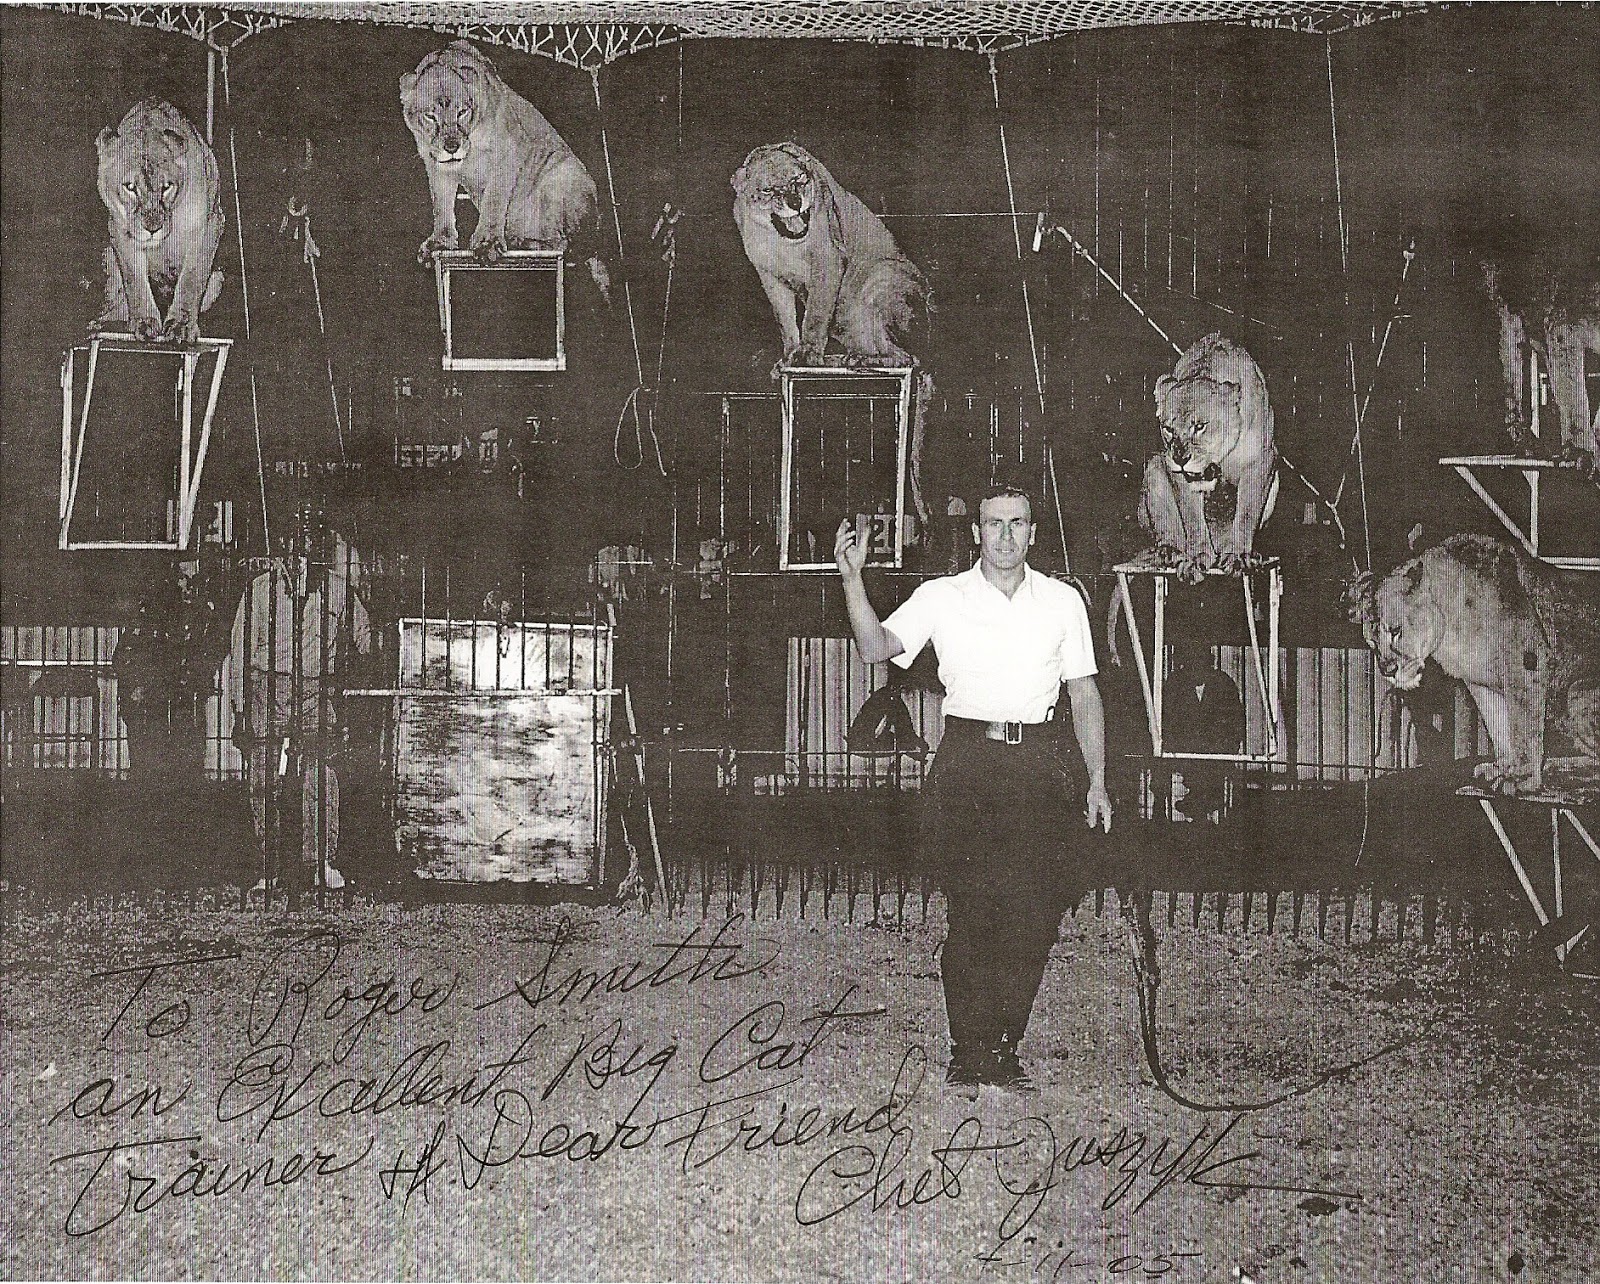 To Roger Smith
an Excellent Big Cat
Trainer & Dear Friend
Chet Juszyk